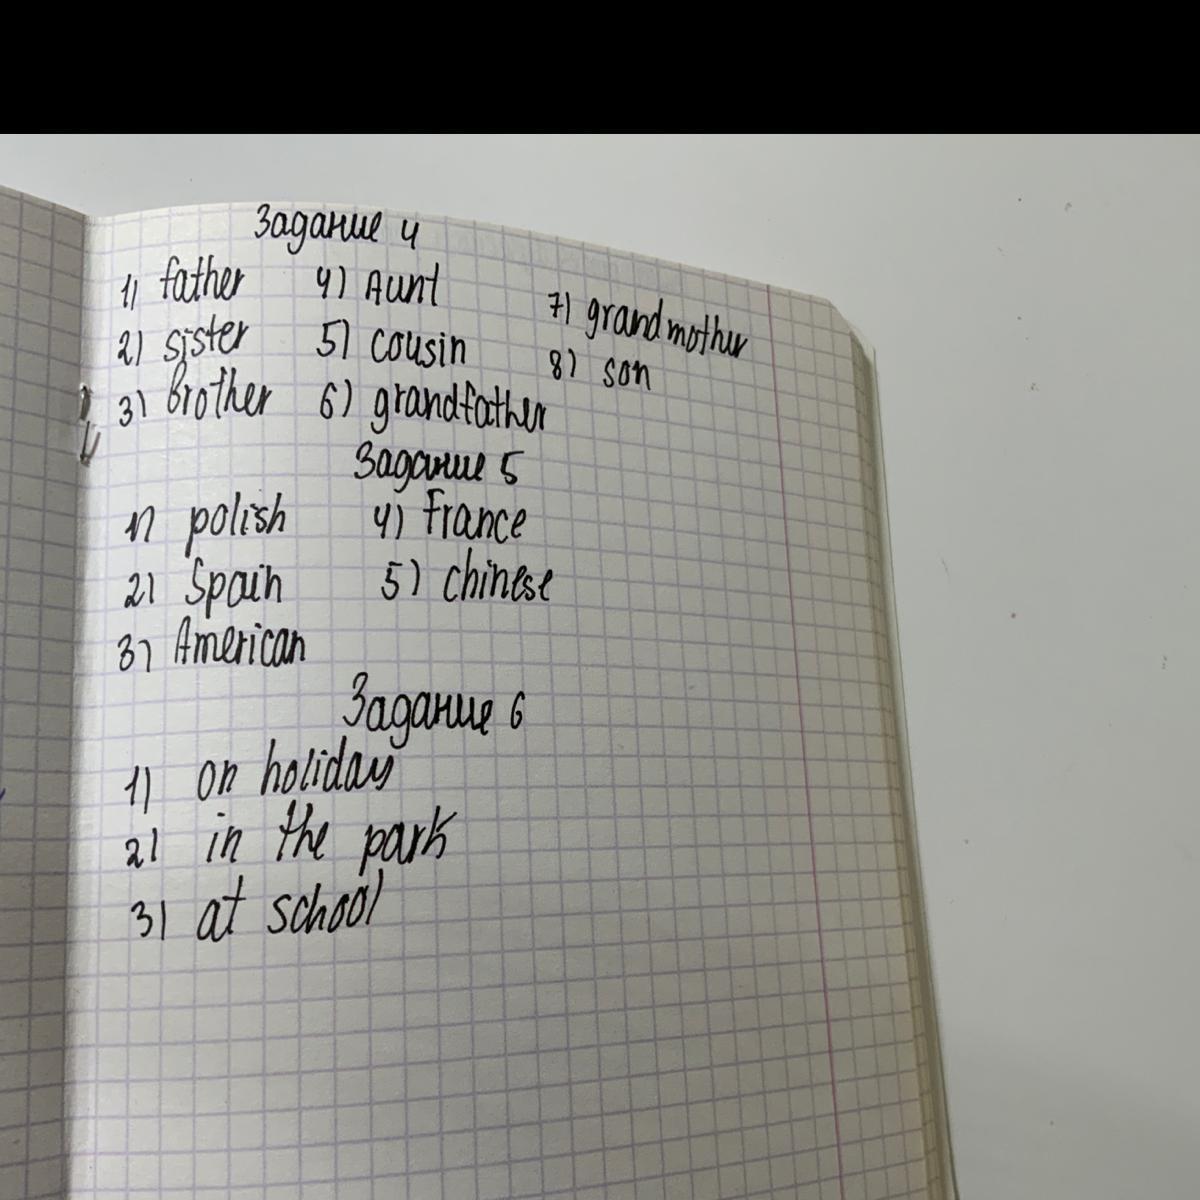 Задание 4
1) father 4) Aunt 7) grandmother
2) sister 5) cousin 8) son
3) brother 6) grandfather
Задание 5
1) polish 4) France
2) Spain 5) chinese
3) American
Задание 6
1) on holiday
2) in the park
3) at school